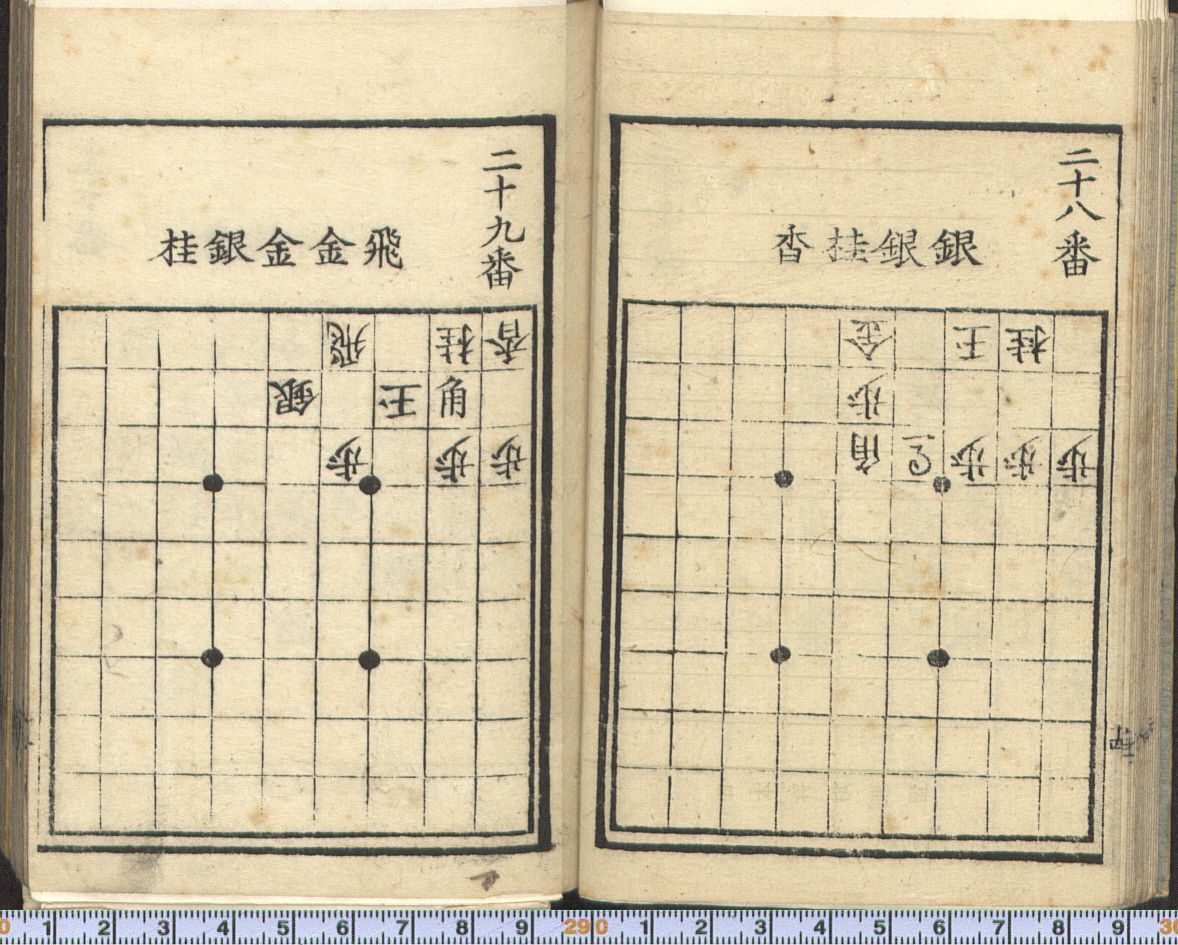 二十八番
銀銀桂香
桂王金
歩
歩歩歩角
二十九番
飛金金銀桂
香桂飛
角玉銀
歩歩歩
0 1 2 3 4 5 6 7 8 9 29 0 1 2 3 4 5 6 7 8 9 30